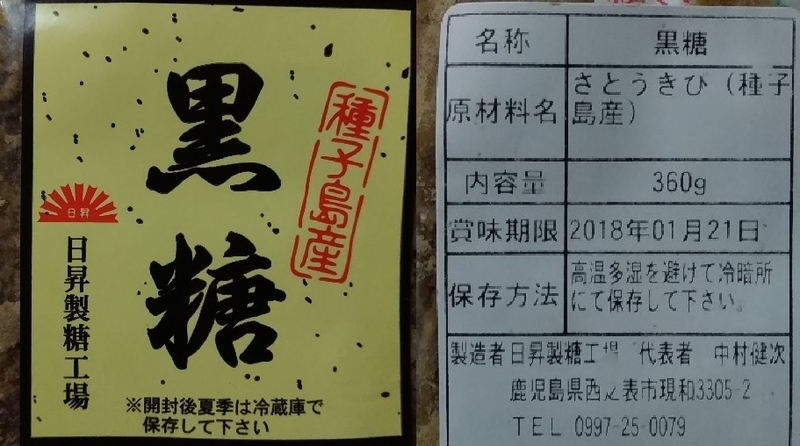 黒糖
種子島産
日昇
日昇製糖工場
※開封後夏季は冷蔵庫で
保存して下さい
名称 黒糖
原材料名 さとうきび（種子
島産）
内容量 360g
賞味期限 2018年01月21日
保存方法 高温多湿を避けて冷暗所
にて保存して下さい。
製造者 日昇製糖工場 代表者 中村健次
鹿児島県西之表市現和3305-2
TEL 0997-25-0079